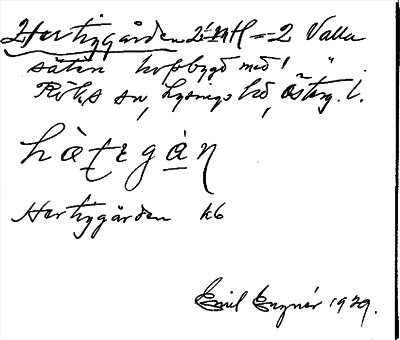 Hertiggården 2 1/4 Htl = 2 Valla
säten hopbygd med!
Röks sn, Lysings hd, Österg. l.
hà̱tɛgà̱n
Hertiggården kb
Emil Engnér 1929.